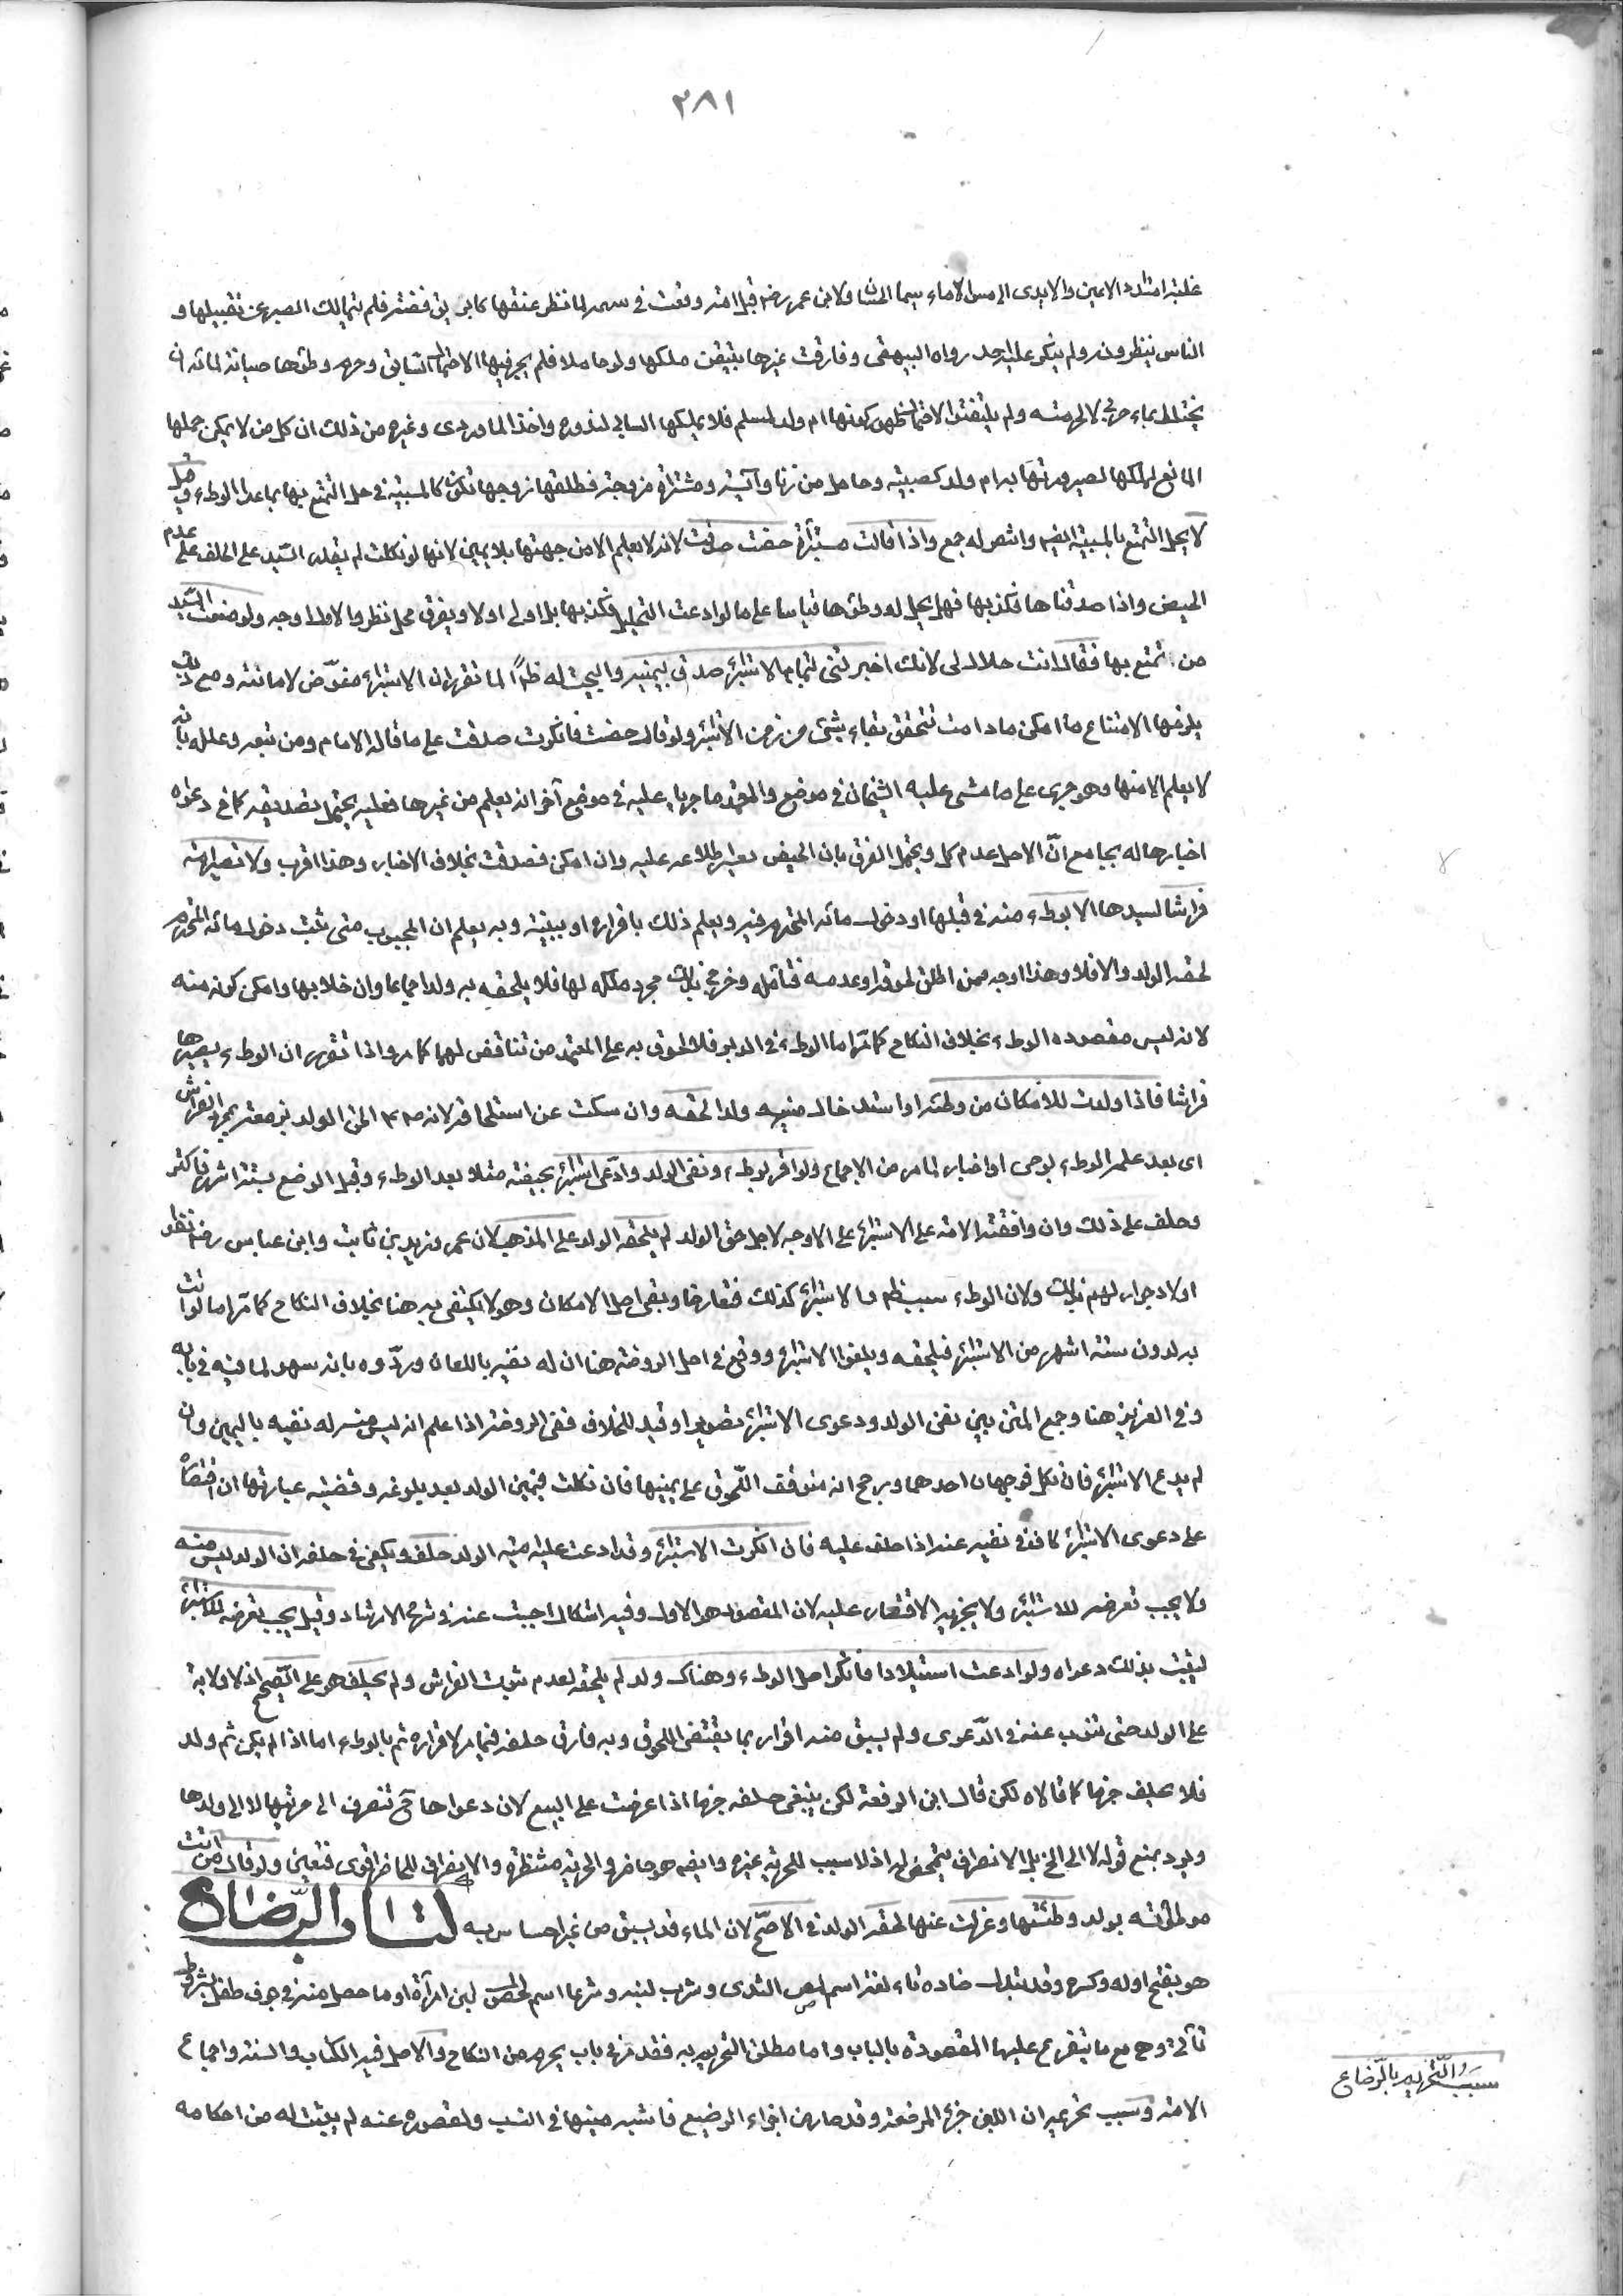 ٣٨١
غلبة امتداد الاعين والايدى الى مس الاماء سيما الحسان ولان ابن عمر رضي قبل امة وقعت في سهمه لما نظر عنقها كابريق فضة فلم يتمالك الصبر عن تقبيلها و
الناس ينظرون ولم ينكر عليه احد رواه البيهقى وفارقت غيرها بتيقن ملكها ولو حاملا فلم يجر فيها الاحتمال السابق وحرم وطؤها صيانة لمائه ان
يختلط بماء حربى لا لحرمته ولم يلتفتوا لاحتمال ظهور كونها ام ولد لمسلم فلا يملكها السابى لندوره واخذ الماوردى وغيره من ذلك ان كل من لا يمكن حملها
المانع لملكها لصيرورتها به ام ولد كصبية وحامل من زنا وآيسة ومشتراة مزوجة فطلقها زوجها تكون كالمسبية في حل التمتع بها بما عدا الوطء وقيل
لا يحل التمتع بالمسبية ايضا وانتصر له جمع واذا قالت مستبرأة حضت صدقت لانه لا يعلم الا من جهتها بلا يمين لانها لو نكلت لم يقدر السيد على الحلف على عدم
الحيض واذا صدقناها فكذبها فهل يحل له وطؤها قياسا على ما لو ادعت التحليل فكذبها بل اولى او لا ويفرق محل نظر والاول اوجه ولو منعت السيد
من تمتع بها فقال انت حلال لى لانك اخبرتنى بتمام الاستبراء صدق بيمينه وابيحت له ظاهرا لما تقرر ان الاستبراء مفوض لامانته ومع ذلك
يلزمها الامتناع منه ما امكن ما دامت تتحقق بقاء شئ من زمن الاستبراء ولو قال حضت فانكرت صدقت على ما قاله الامام ومن تبعه وعلله بانه
لا يعلم الا منها وهو جرى على ما مشى عليه الشيخان في موضع والمعتمد ما جريا عليه في موضع آخر انه يعلم من غيرها فعليه يحتمل تصديقه كما في دعواه
اخبارها له بجامع انّ الاصل عدم كل ويحتمل الفرق بان الحيض يعسر اطلاعه عليه وان امكن فصدقت بخلاف الاخبار وهذا اقرب ولا تصير امة
فراشا لسيدها الا بوطء منه في قبلها او دخول مائه المحترم فيه ويعلم ذلك باقراره او ببينة وبه يعلم ان المجبوب متى ثبت دخول مائه المحترم
لحقه الولد والا فلا وهذا اوجه ممن اطلق لحوقه او عدمه فتأمله وخرج بذلك مجرد ملكه لها فلا يلحقه به ولد اجماعا وان خلا بها وامكن كونه منه
لانه ليس مقصوده الوطء بخلاف النكاح كما مر اما الوطء في الدبر فلا لحوق به على المعتمد من تناقض لهما كما مر واذا تقرر ان الوطء يصيرها
فراشا فاذا ولدت للامكان من وطئه او استدخال منيه ولدا لحقه وان سكت عن استلحاقه لانه صم الحق الولد بزمعة بمجرد الفراش
اى بعد علمه الوطء بوحى او اخبار لما مر من الاجماع ولو اقر بوطء ونفى الولد وادّعى استبراء بحيضة مثلا بعد الوطء وقبل الوضع بستة اشهر فاكثر
وحلف على ذلك وان وافقته الامة على الاستبراء على الاوجه لاجل حق الولد لم يلحقه الولد على المذهب لان عمر وزيد بن ثابت وابن عباس رضي نفوا
اولاد جوار لهم بذلك ولان الوطء سبب ظاهر والاستبراء كذلك فتعارضا وبقى اصل الامكان وهو لا يكتفى به هنا بخلاف النكاح كما مر اما لو اتت
به لدون ستة اشهر من الاستبراء فيلحقه ويلغو الاستبراء ووقع في اصل الروضة هنا ان له نفيه باللعان وردّوه بانه سهو لما فيه في بابه
وفي العزيز هنا وجمع المتن بين نفى الولد ودعوى الاستبراء تصوير او قيد للخلاف ففى الروضة اذا علم انه ليس منه له نفيه باليمين وان
لم يدع الاستبراء فان نكل فوجهان احدهما ورجح انه يتوقف اللحوق على يمينها فان نكلت فيمين الولد بعد بلوغه وقضية عبارتها ان اقتصاره
على دعوى الاستبراء كاف في نفيه عنه اذا حلف عليه فان انكرت الاستبراء وقد ادعت عليه امية الولد حلف ويكفى في حلفه ان الولد ليس منه
ولا يجب تعرضه للاستبراء ولا يجزيه الاقتصار عليه لان المقصود هو الاول وفيه اشكال اجبت عنه في شرح الارشاد وقيل يجب تعرضه للاستبراء
ليثبت بذلك دعواه ولو ادعت استيلادا فانكر اصل الوطء وهناك ولد لم يلحقه لعدم ثبوت الفراش ولم يحلف هو على الصحيح اذ لا ولاية
على الولد حتى تنوب عنه في الدّعوى ولم يسبق منه اقرار بما يقتضى اللحوق وبه فارق حلفه فيما مر لاقراره ثم بالوطء اما اذا لم يكن ثم ولد
فلا يحلف جزما كما قالاه لكن قال ابن الرفعة لكن ينبغى حلفه جزما اذا عرضت على البيع لان دعواها ح تنصرف الى حريتها لا الى ولدها
ويرد بمنع قوله لا الى الخ بل الانصراف يتمحض له اذ لا سبب للحرية غيره وايضا هو حاضر والحرية منتظرة والانصراف للحاضر اقوى فتعين ولو قال من اتت
موطوئته بولد وطئتها وعزلت عنها لحقه الولد في الاصحّ لان الماء قد يسبق من غير احساس به كتاب الرّضاع
هو بفتح اوله وكسره وقد تبدل ضاده تاء لغة اسم لمص الثدى وشرب لبنه وشرعا اسم لحصول لبن امرأة او ما حصل منه في جوف طفل بشروط
تأتى وهى مع ما يتفرع عليها المقصودة بالباب واما مطلق التحريم به فقد مر في باب يحرم من النكاح والاصل فيه الكتاب والسنة واجماع
الامة وسبب تحريمه ان اللبن جزء المرضعة وقد صار من اجزاء الرضيع فاشبه منيها في النسب ولقصوره عنه لم يثبت له من احكامه
سبب التحريم بالرّضاع